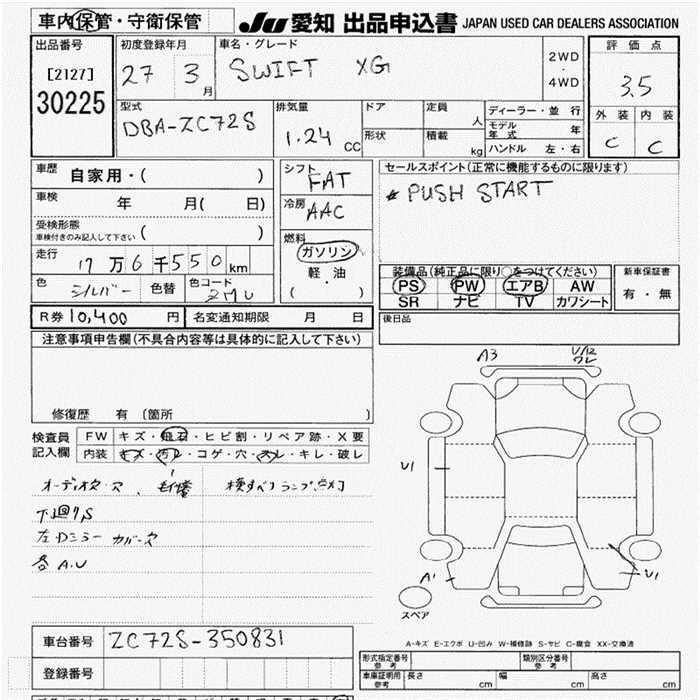 車内保管・守衛保管
JU 愛知 出品申込書 JAPAN USED CAR DEALERS ASSOCIATION
出品番号
[2127]
30225
初度登録年月
27 3月
車名・グレード
SWIFT XG
2WD
・
4WD
評価点
3.5
外装 内装
C C
型式
DBA-ZC72S
排気量
1.24 CC
ドア
定員
人
形状
積載
kg
ディーラー・並行
モデル年式 年
ハンドル 左・右
車歴
自家用・( )
車検
年 月( 日)
受検形態
車検付きのみ記入して下さい ( )
走行
17万6千550km
色
シルバー
色替
色コード
ZMU
シフト
FAT
冷房
AAC
燃料
ガソリン
軽・油
( )
セールスポイント(正常に機能するものに限ります)
* PUSH START
装備品(純正品に限り○をつけてください)
PS PW エアB AW
SR ナビ TV カワシート
新車保証書
有・無
R券 10,400円
名変通知期限 月 日
後日品
注意事項申告欄(不具合内容等は具体的に記入して下さい)
修復歴 有 (箇所 )
検査員記入欄
FW キズ・飛石・ヒビ割・リペア跡・X要
内装 キズ・汚レ・コゲ・穴・スレ・キレ・破レ
オーディオクス
横すべりランプ点灯
下廻りS
左Dミラー カバーヌケ
各A.U
A3
U1
A1
U1
スペア
A-キズ E-エクボ U-凹み W-補修跡 S-サビ C-腐食 XX-交換済
車台番号
ZC72S-350831
登録番号
形式指定番号
参考
類別区分番号
参考
車庫証明用
参考
長さ cm 幅 cm 高さ cm